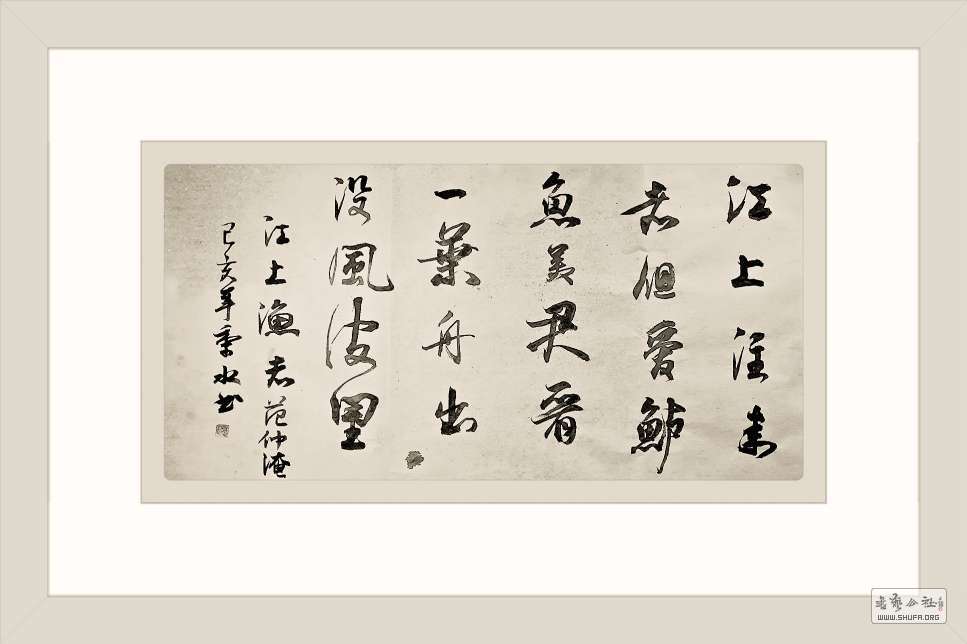 江上往来
者但愛鲈
魚美君看
一葉舟出
没風波里
江上漁者范仲淹
己亥年水书
书艺公社
WWW.SHUFA.ORG